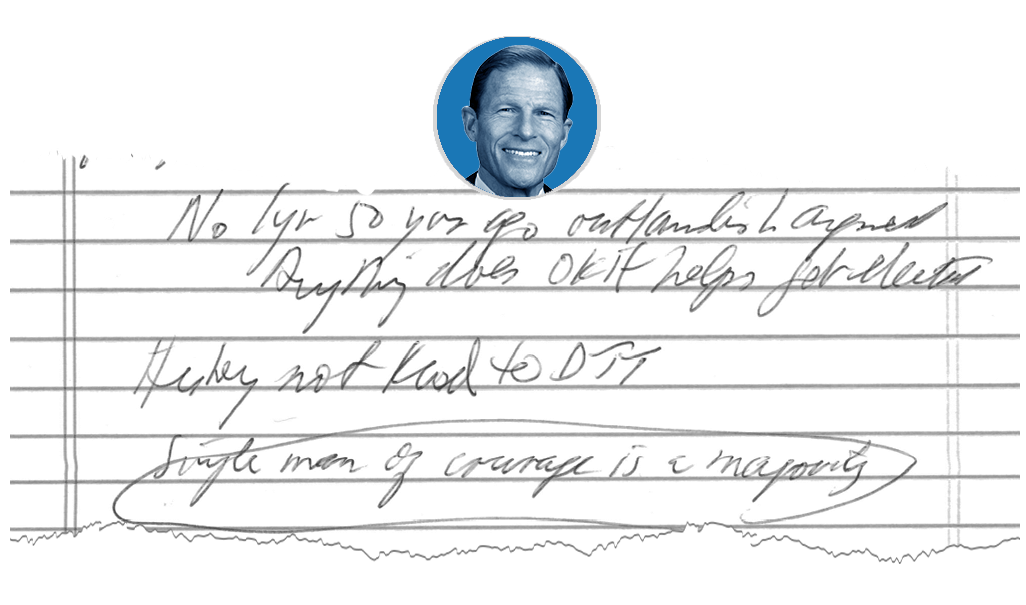 No lyr so you go outlandish argued
Anything does OK if helps get elected
History not kind to DJT
Single man of courage is a majority